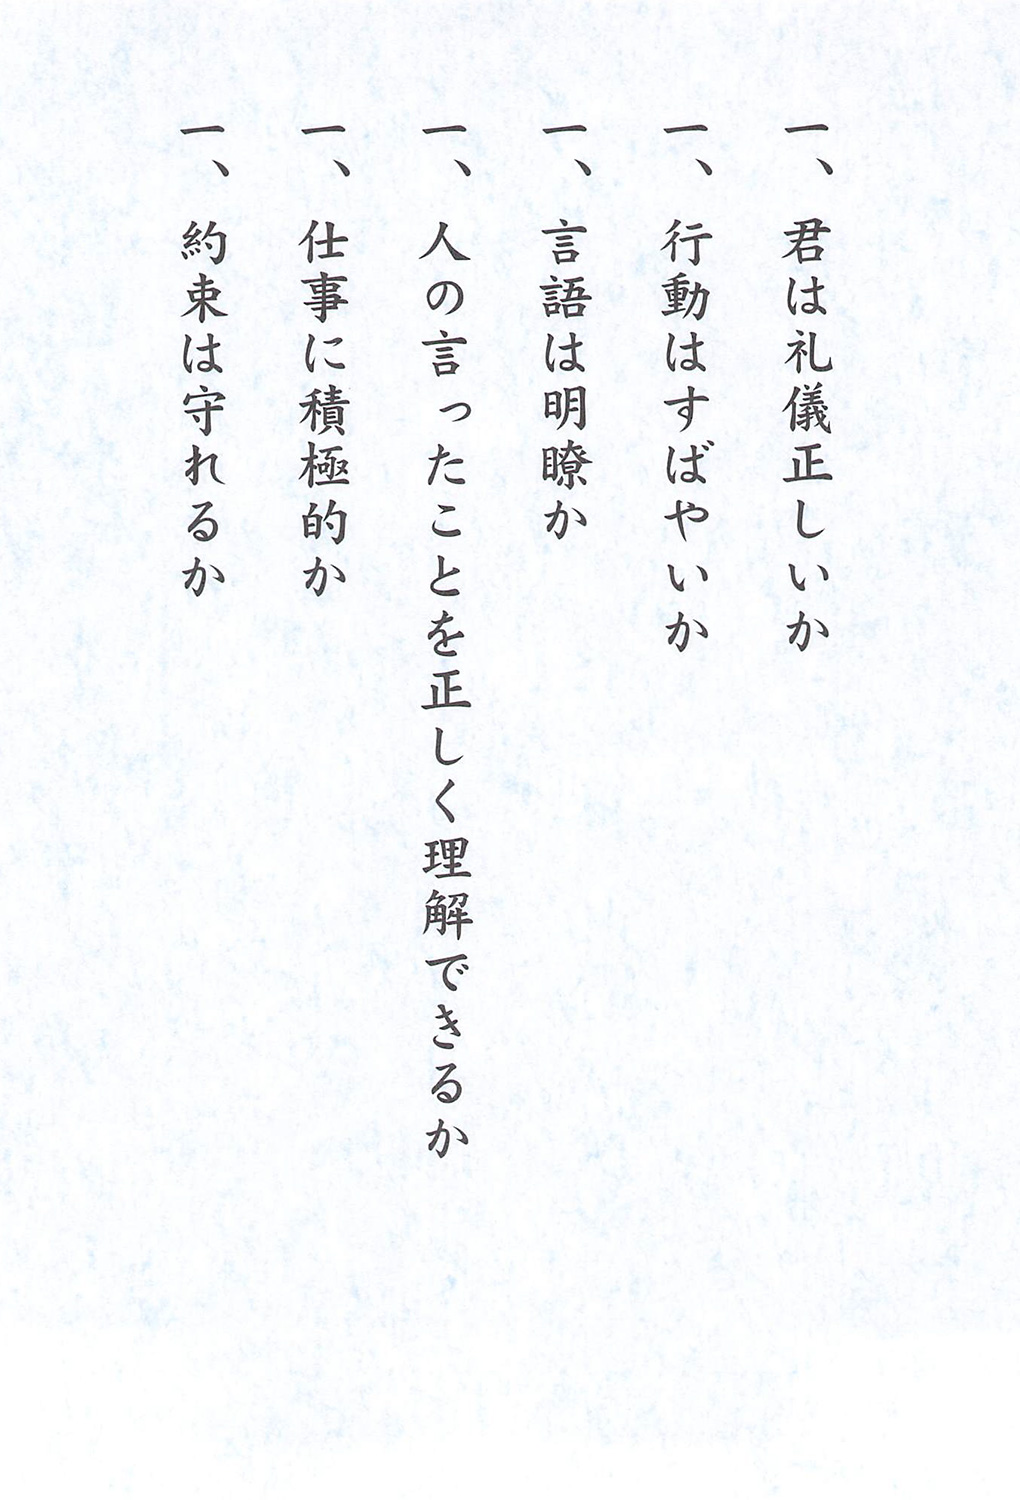 一、君は礼儀正しいか
一、行動はすばやいか
一、言語は明瞭か
一、人の言ったことを正しく理解できるか
一、仕事に積極的か
一、約束は守れるか